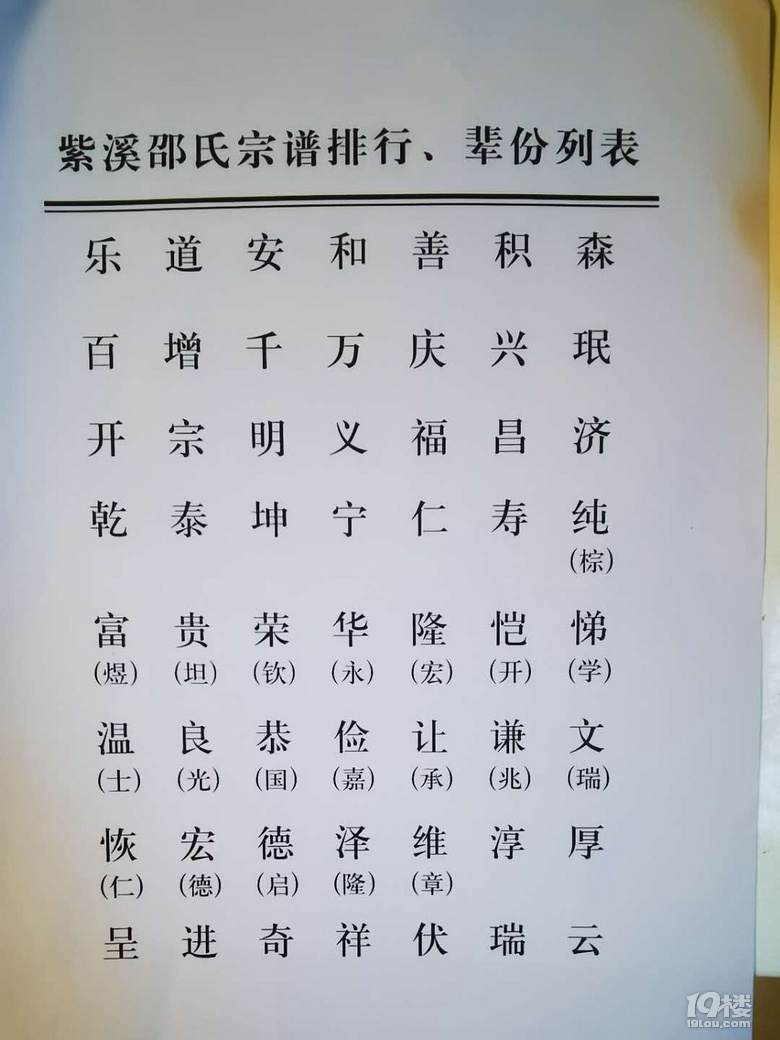 紫溪邵氏宗谱排行、辈份列表
乐 道 安 和 善 积 森
百 增 千 万 庆 兴 珉
开 宗 明 义 福 昌 济
乾 泰 坤 宁 仁 寿 纯
(棕)
富 贵 荣 华 隆 恺 悌
(煜) (坦) (钦) (永) (宏) (开) (学)
温 良 恭 俭 让 谦 文
(士) (光) (国) (嘉) (承) (兆) (瑞)
恢 宏 德 泽 维 淳 厚
(仁) (德) (启) (隆) (章)
呈 进 奇 祥 伏 瑞 云
19楼
19lou.com